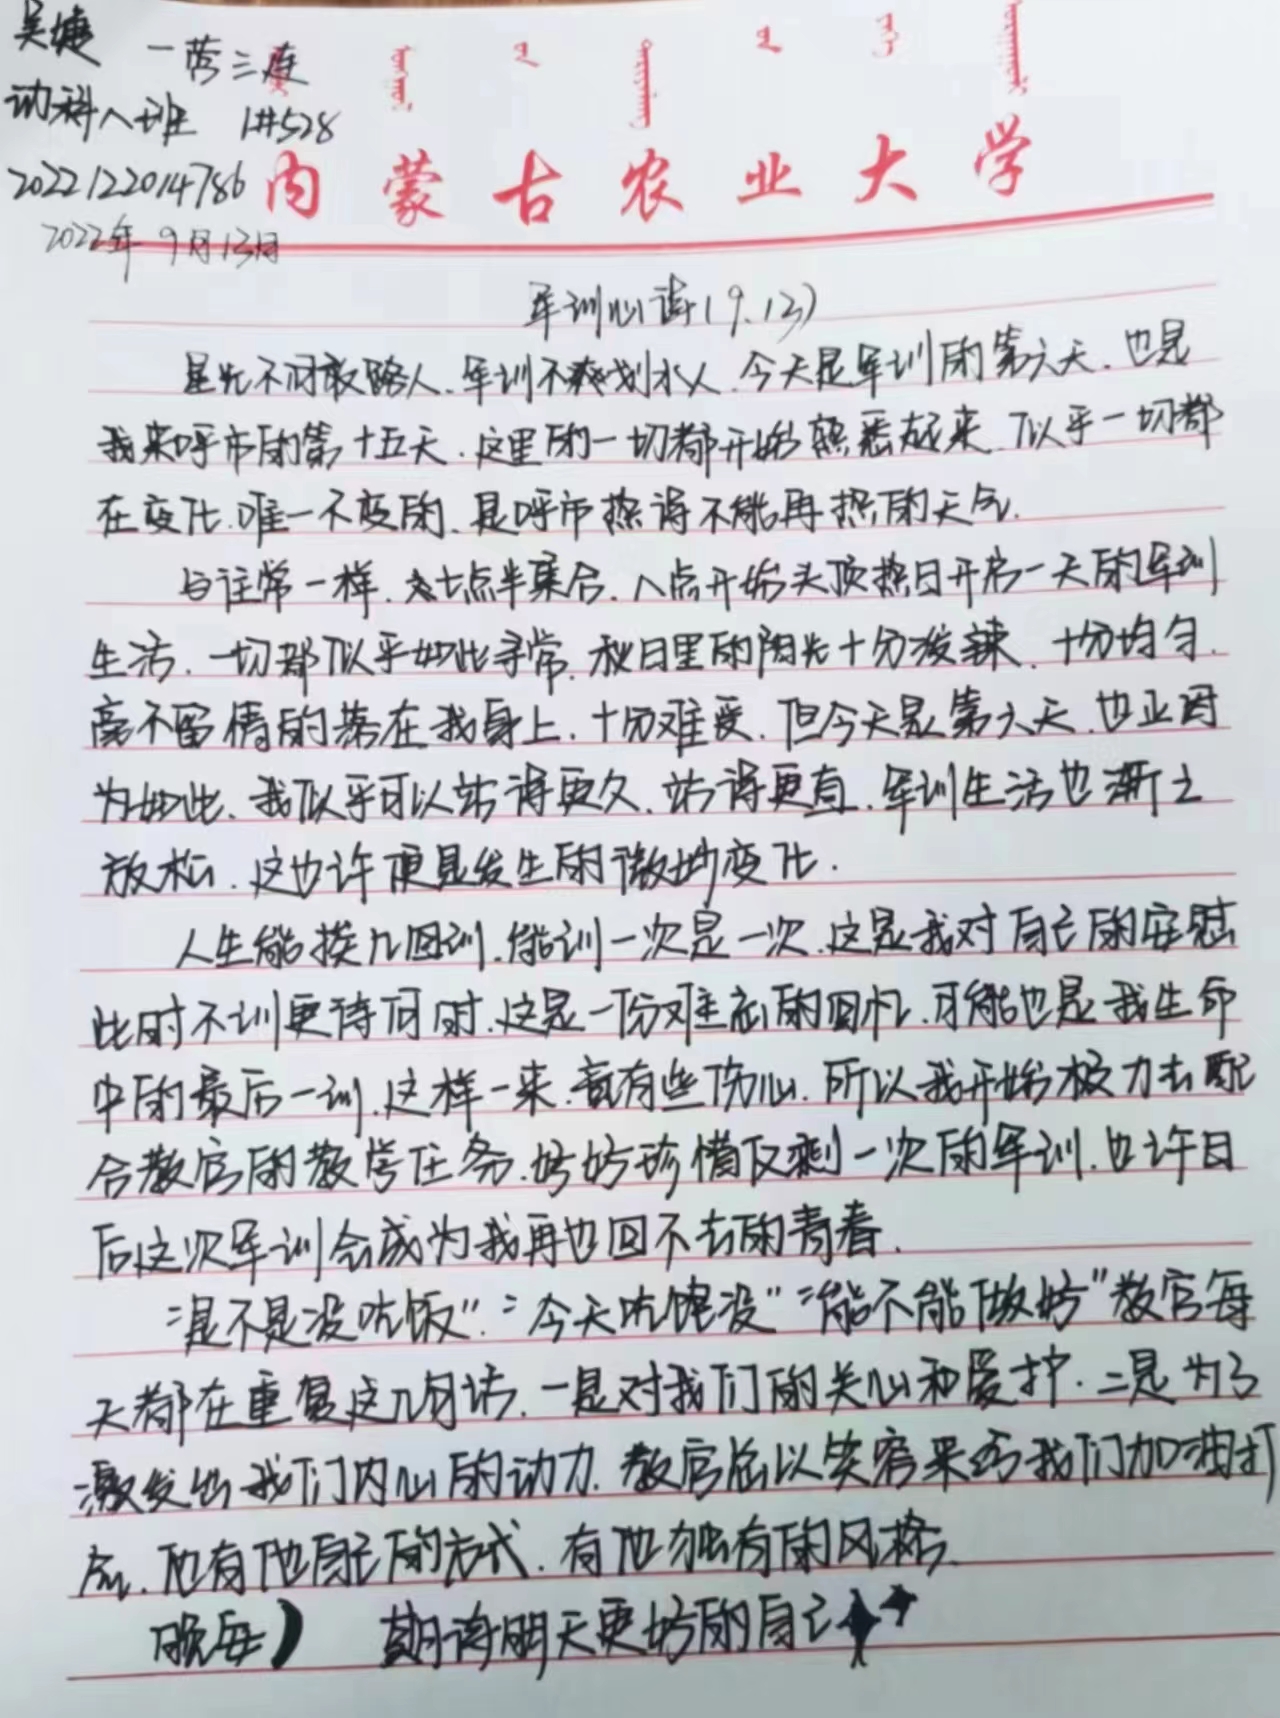 吴婕 一营三连
动科八班 1#528
2022122014786
内蒙古农业大学
2022年9月13日
军训心得(9.13)
星光不问敢路人,军训不爽划水人,今天是军训的第六天,也是
我来呼市的第十五天,这里的一切都开始熟悉起来,似乎一切都
在变化,唯一不变的,是呼市热得不能再热的天气.
与往常一样,七点半集合,八点开始头顶热日开启一天的军训
生活,一切都似乎如此寻常,秋日里的阳光十分泼辣,十分均匀,
毫不留情的落在我身上,十分难受,但今天是第六天,也正因
为如此,我似乎可以站得更久,站得更直,军训生活也渐之
放松,这也许便是发生的微妙变化.
人生能挨几回训,能训一次是一次,这是我对自己的安慰
此时不训更待何时,这是一份难忘的回忆,可能也是我生命
中的最后一训,这样一来,竟有些伤心,所以我开始极力去配
合教官的教学任务,好好珍惜仅剩一次的军训,也许日
后这次军训会成为我再也回不去的青春.
“是不是没吃饭”“今天吃饱没”“能不能做好”教官每
天都在重复这几句话,一是对我们的关心和爱护,二是为了
激发出我们内心的动力,教官总以笑容来给我们加油打
气,他有他自己的方式,有他独有的风格,
晚安 期待明天更好的自己